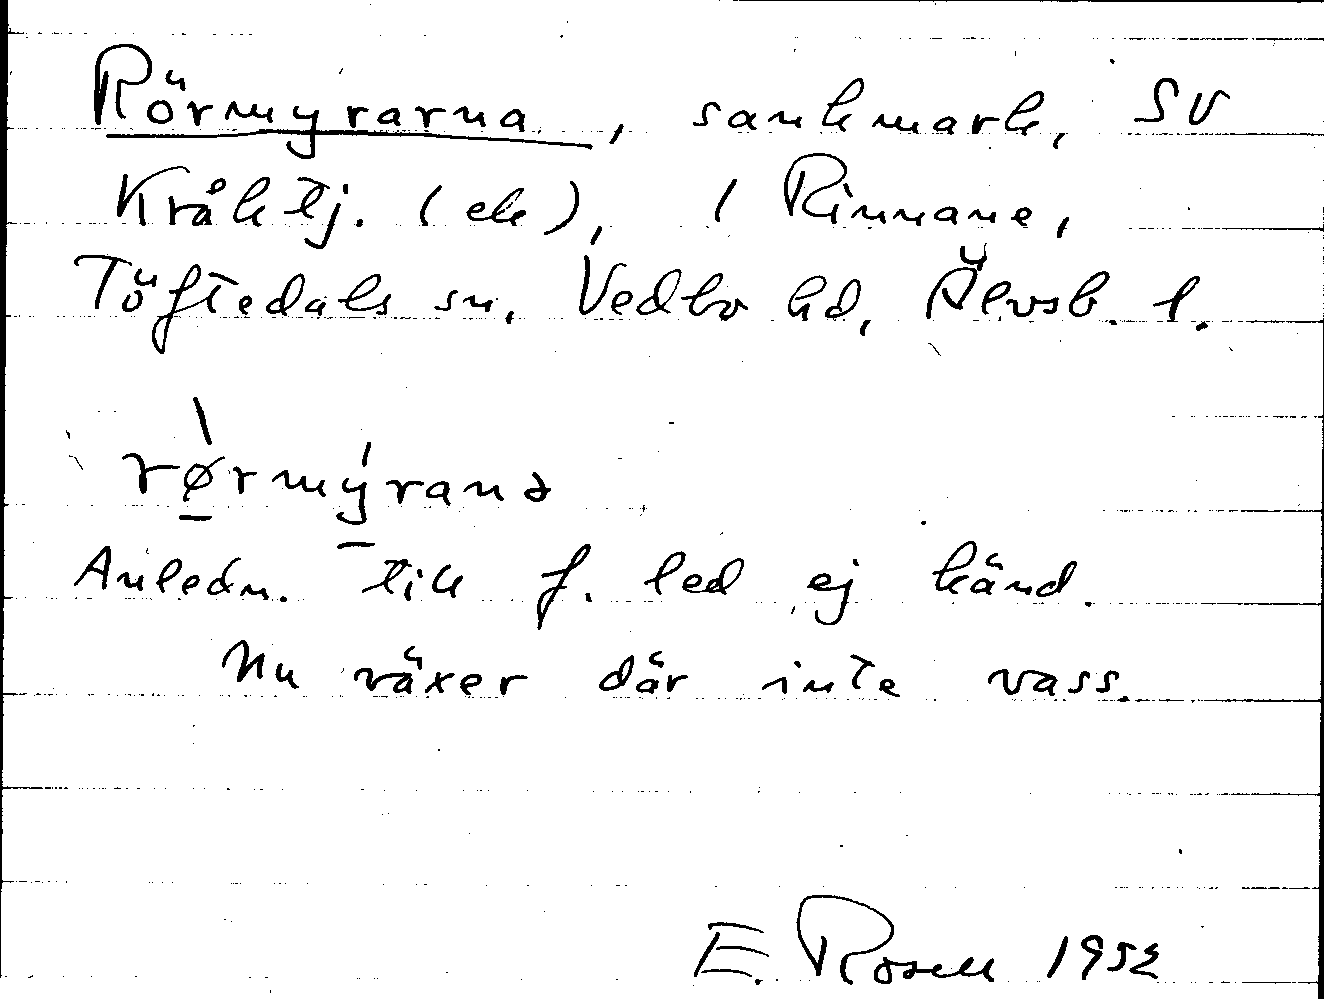 Rörmyrarna, sankmark, SV
Kråktj. (ek), 1 Rinnane,
Töftedals sn, Vedbo hd, Älvsb. l.
rørmýranə
Anledn. till f. led ej känd.
Nu växer där inte vass.
E. Rosell 1952